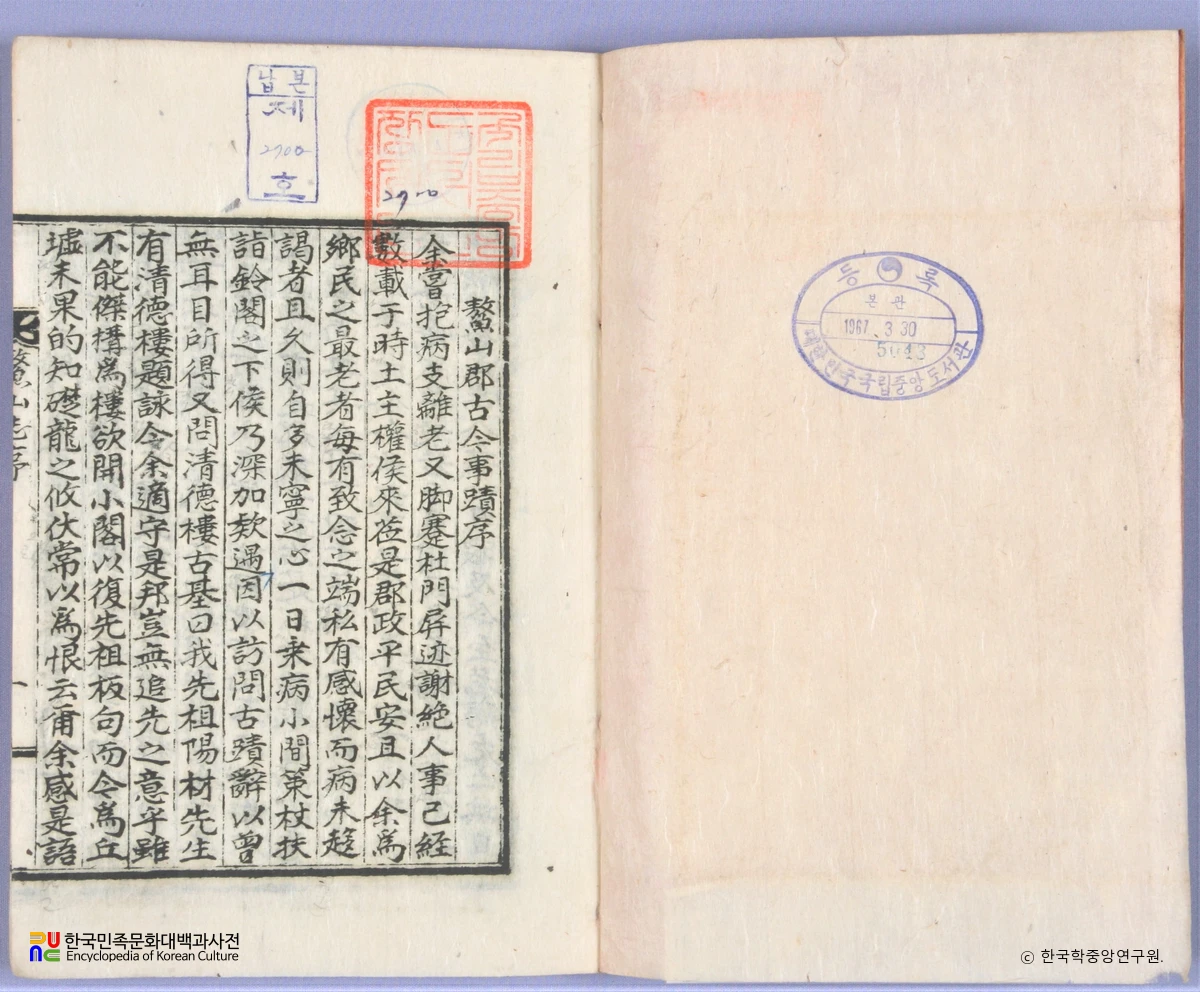 鰲山郡古今事蹟序
余嘗抱病支離老又脚蹇杜門屛迹謝絶人事已經
數載于時土主權侯來莅是郡政平民安且以余爲
鄕民之最老者每有致念之端私有感懷而病未趍
謁者且久則自多未寧之心一日乘病小間策杖扶
詣鈴閣之下侯乃深加欵遇因以訪問古蹟辭以曾
無耳目所得又問清德樓古基曰我先祖陽村先生
有清德樓題詠今余適守是邦豈無追先之意乎雖
不能傑構爲樓欲開小閣以復先祖板句而今爲丘
墟未果的知礎龍之攸伏常以爲恨云爾余感是語
鰲山志序
一
납본
제
2700
호
2700
등록
본관
1967. 3. 30
5043
대한민국국립중앙도서관
한국민족문화대백과사전
Encyclopedia of Korean Culture
ⓒ 한국학중앙연구원.